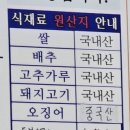 식재료 원산지 안내
쌀 국내산
배추 국내산
고추가루 국내산
돼지고기 국내산
오징어 중국산